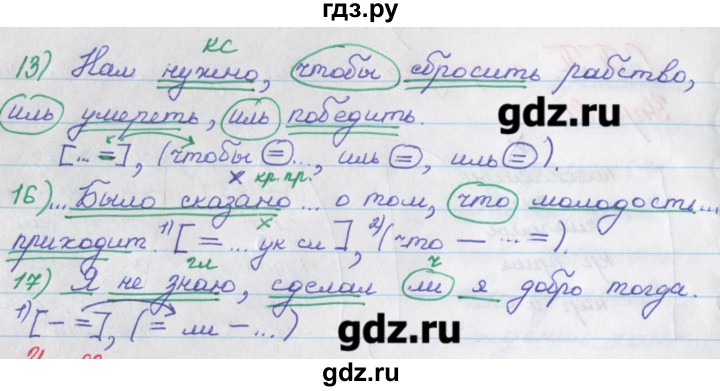 гдз.ру
КС
13) Нам нужно, чтобы сбросить рабство,
иль умереть, иль победить.
[... =], (чтобы =..., иль =, иль =).
х кр. пр.
16)... Было сказано... о том, что молодость...
приходит. 1) [= ... ук сл], 2) (что – ... =)
х
гл ч
17) Я не знаю, сделал ли я добро тогда.
1) [– =], (= ли – ...)
gdz.ru
gdz.ru
gdz.ru